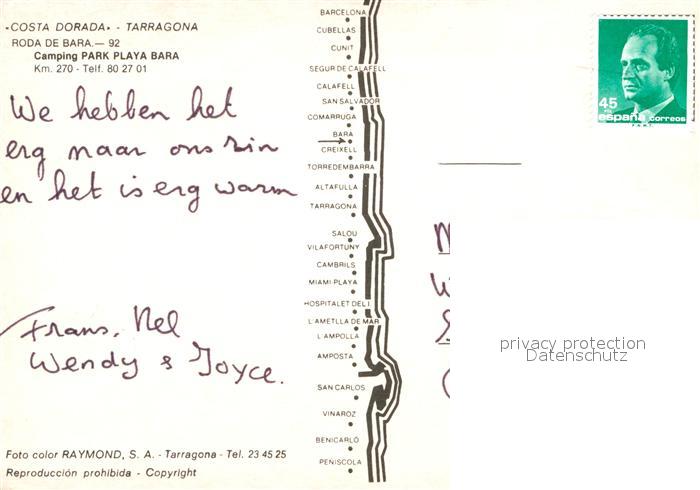 «COSTA DORADA» - TARRAGONA
RODA DE BARA.— 92
Camping PARK PLAYA BARA
Km. 270 - Telf. 80 27 01
We hebben het
erg naar ons zin
en het is erg warm
Frans, Nel
Wendy & Joyce.
Foto color RAYMOND, S. A. - Tarragona - Tel. 23 45 25
Reproducción prohibida - Copyright
BARCELONA
CUBELLAS
CUNIT
SEGUR DE CALAFELL
CALAFELL
SAN SALVADOR
COMARRUGA
BARA
CREIXELL
TORREDEMBARRA
ALTAFULLA
TARRAGONA
SALOU
VILAFORTUNY
CAMBRILS
MIAMI-PLAYA
HOSPITALET DEL I.
L'AMETLLA DE MAR
L'AMPOLLA
AMPOSTA
SAN CARLOS
VINAROZ
BENICARLÓ
PEÑISCOLA
45
PTA
españa correos
F.N.M.T.
privacy protection
Datenschutz